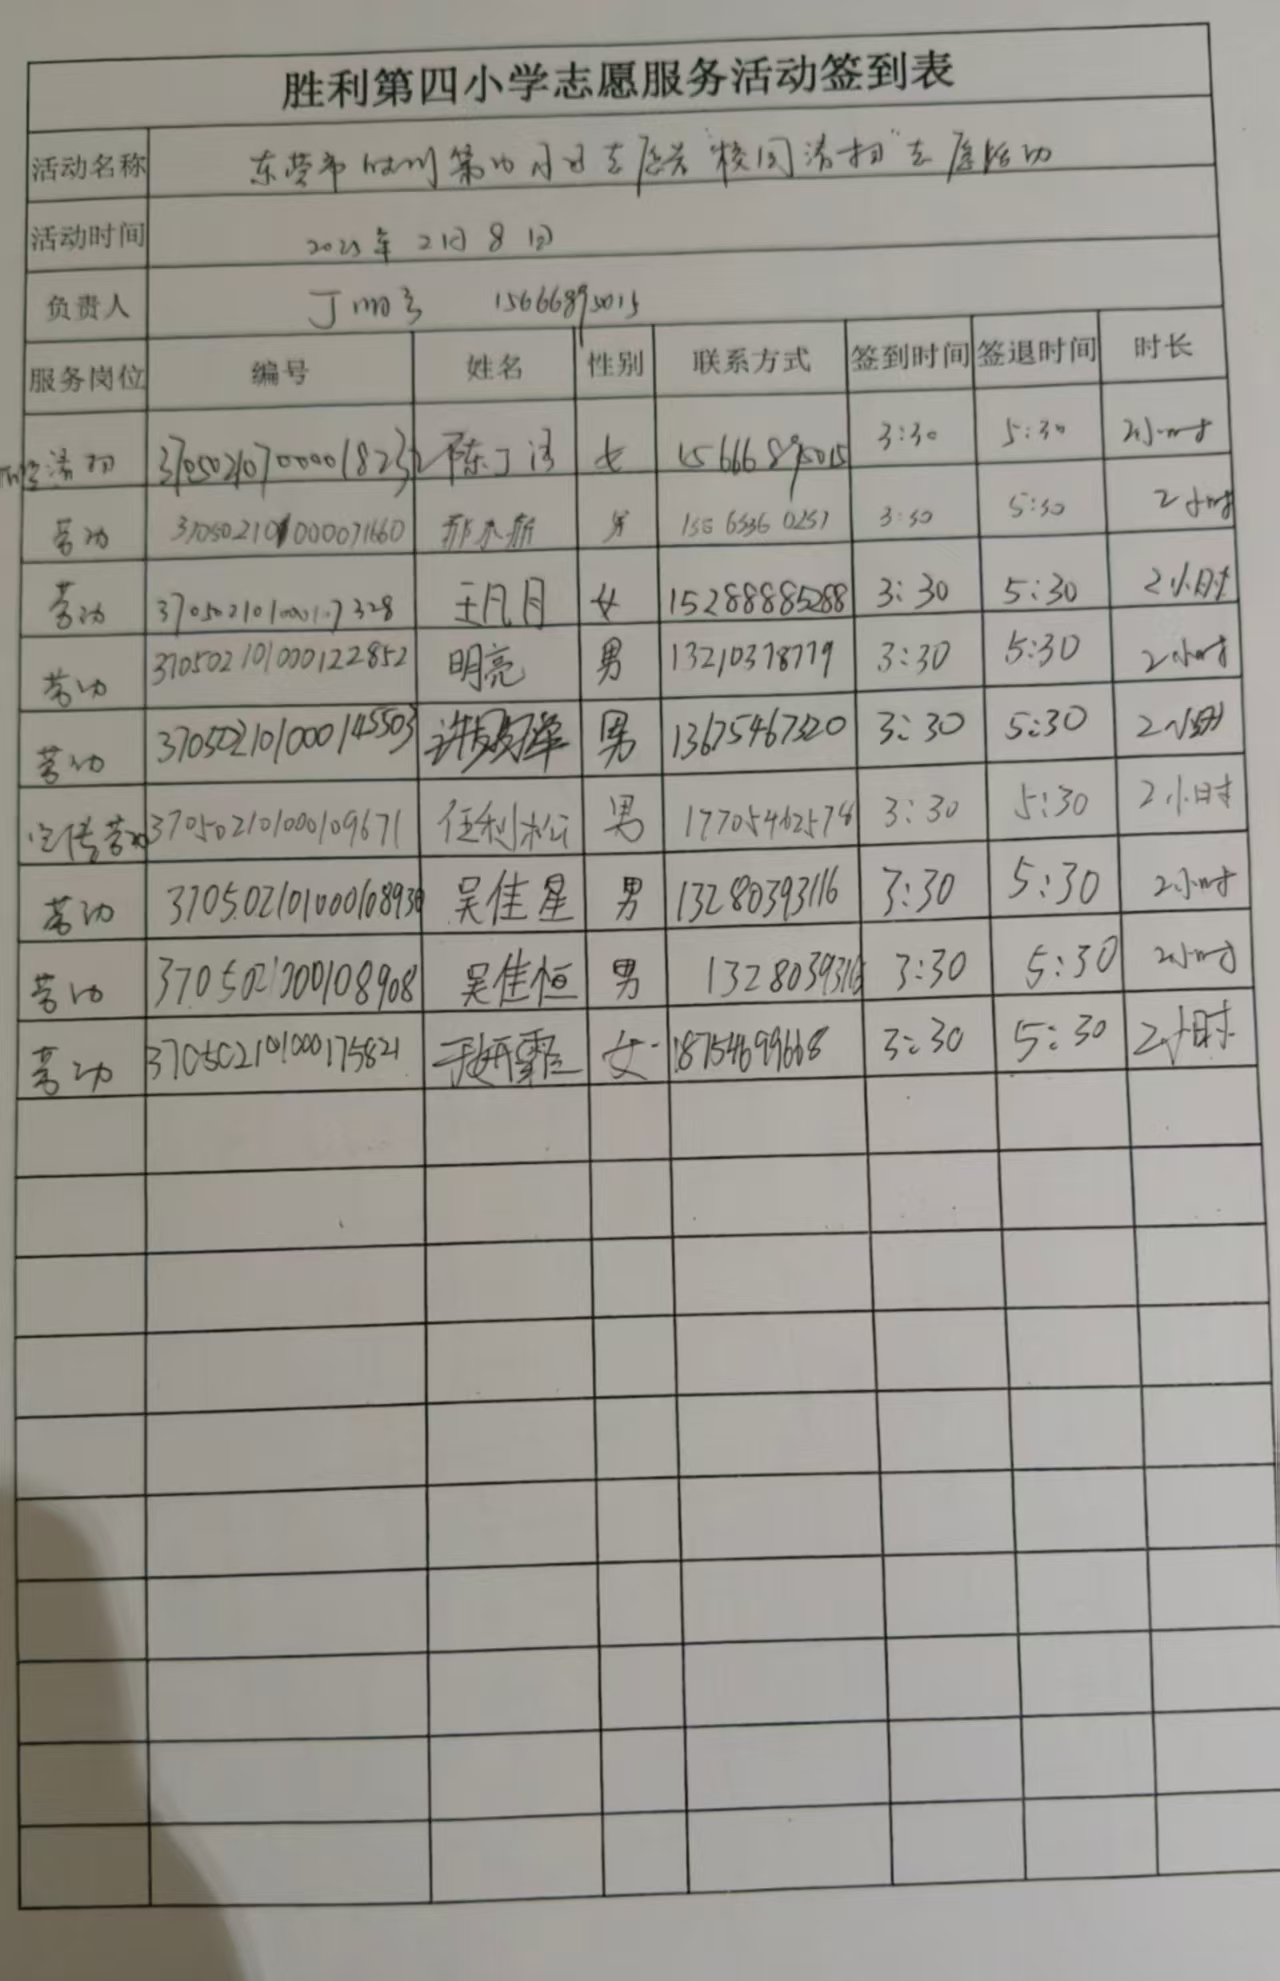 胜利第四小学志愿服务活动签到表
活动名称 东营市胜利第四小学志愿者"校园清扫"志愿活动
活动时间 2025年2月8日
负责人 丁 15666895015
服务岗位 编号 姓名 性别 联系方式 签到时间 签退时间 时长
清扫 陈丁 女 15666895015 3:30 5:30 2小时
劳动 男 3:30 5:30 2小时
劳动 王凡月 女 15288885288 3:30 5:30 2小时
劳动 370502101000122852 明亮 男 3:30 5:30 2小时
劳动 370502101000145503 男 13675467320 3:30 5:30 2小时
宣传劳动 370502101000109671 任利松 男 17705462578 3:30 5:30 2小时
劳动 370502101000108930 吴佳星 男 13280393116 3:30 5:30 2小时
劳动 3705021000108908 吴佳恒 男 13280393116 3:30 5:30 2小时
劳动 370502101000175821 于妍霏 女 18754699668 3:30 5:30 2小时